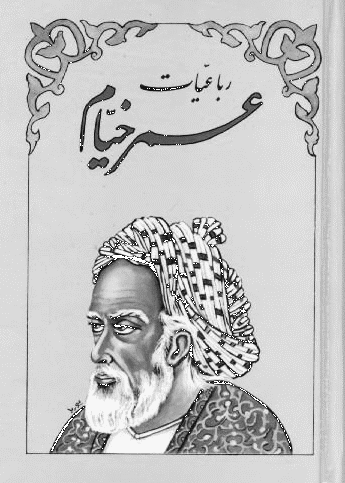 رباعیّات
عمر خیّام